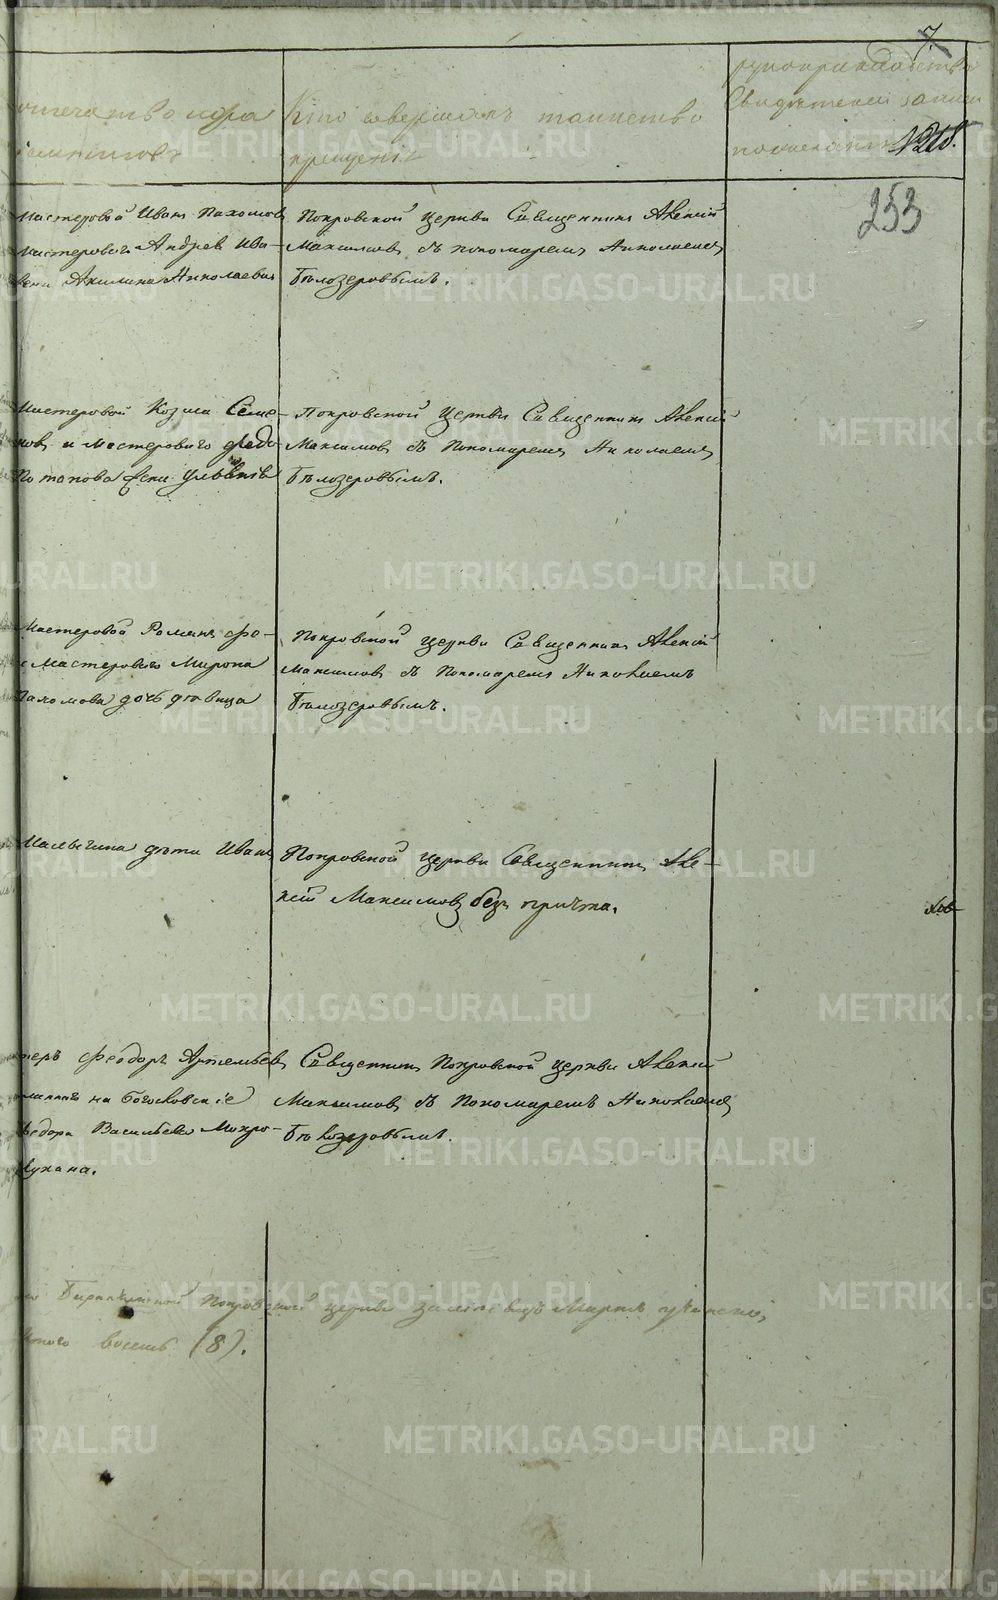 7.
отчество и фа
Кто совершалъ таинство
рукоприкладство
крещенія
свидѣтелей записи
218.
253
Мастеровой Иванъ Пахомов
Мастерового Андрея Ива-
Акилина Николаевна
Покровской церкви Священникъ Алексій
Максимовъ съ пономаремъ Николаемъ
Бѣлозеровымъ.
Мастеровой Козма Семе-
новъ и мастерового Федо
Потапова
Покровской церкви Священникъ Алексій
Максимовъ съ Пономаремъ Николаемъ
Бѣлозеровымъ.
Мастеровой Романъ Фе-
и Мастерового Мирона
Пахомова дочь дѣвица
Покровской церкви Священникъ Алексій
Максимовъ съ Пономаремъ Николаемъ
Бѣлозеровымъ.
Малыгина дѣти Иванъ
Покровской церкви Священникъ Але-
ксій Максимовъ безъ причта.
Феодоръ Артемьевъ
на Богословскіе
Федора Васильева Мокро-
Священникъ Покровской церкви Алексій
Максимовъ съ Пономаремъ Николаемъ
Бѣлозеровымъ.
Покровской церкви
восемь (8).
METRIKI.GASO-URAL.RU